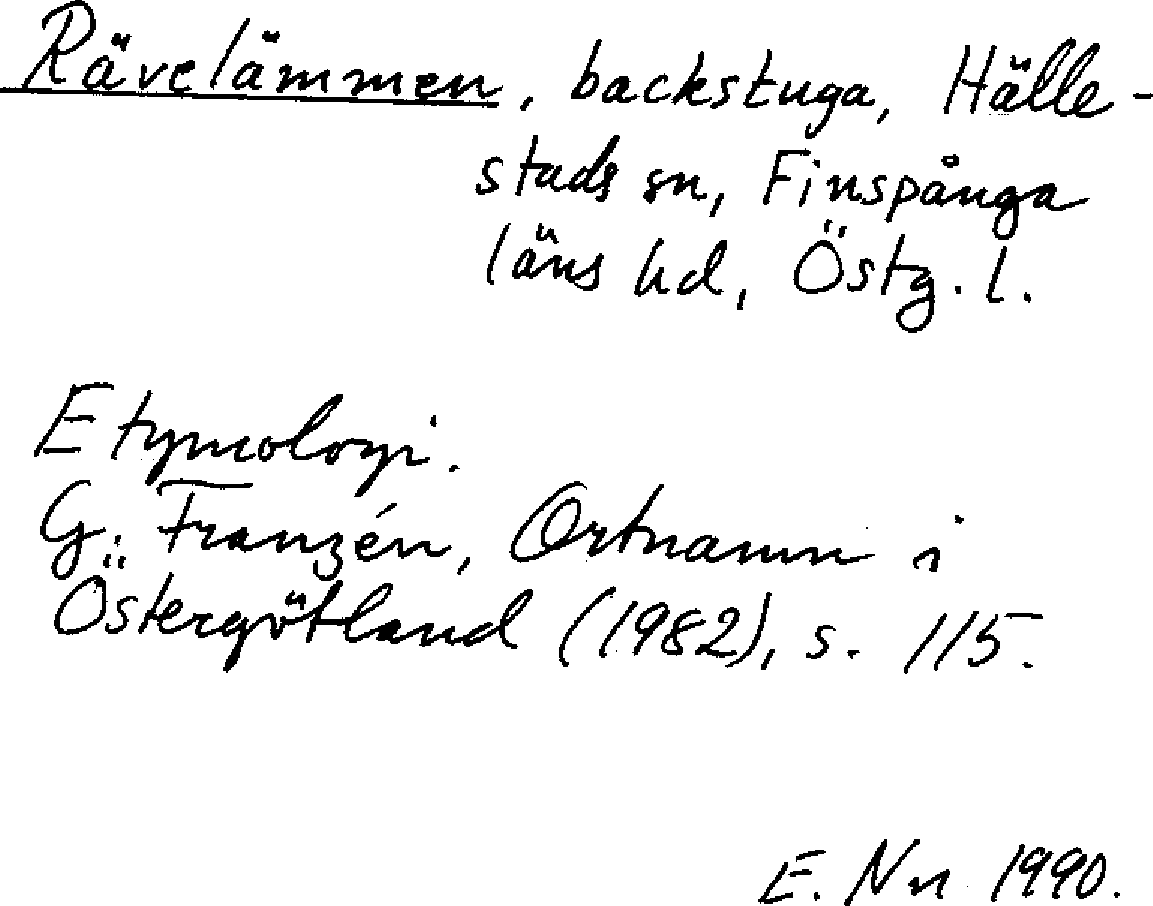 Rävelämmen, backstuga, Hälle-
stads sn, Finspånga
läns hd, Östg. l.
Etymologi.
G. Franzén, Ortnamn i
Östergötland (1982), s. 115.
E. Nn 1990.